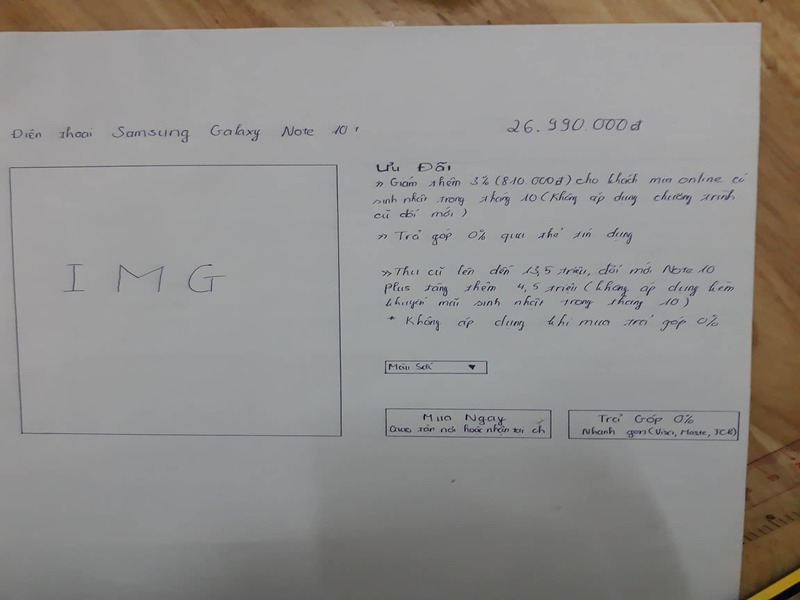 Điện thoại Samsung Galaxy Note 10+
26.990.000đ
IMG
Ưu Đãi
» Giảm thêm 3% (810.000đ) cho khách mua online có
sinh nhật trong tháng 10 (Không áp dụng chương trình
cũ đổi mới)
» Trả góp 0% qua thẻ tín dụng
» Thu cũ lên đến 13,5 triệu, đổi mới Note 10
Plus tặng thêm 4,5 triệu (không áp dụng kèm
khuyến mãi sinh nhật trong tháng 10)
* Không áp dụng khi mua trả góp 0%
Màu Sắc ▼
Mua Ngay
Giao tận nơi hoặc nhận tại
Trả Góp 0%
Nhanh gọn (Visa, Maste, JCB)